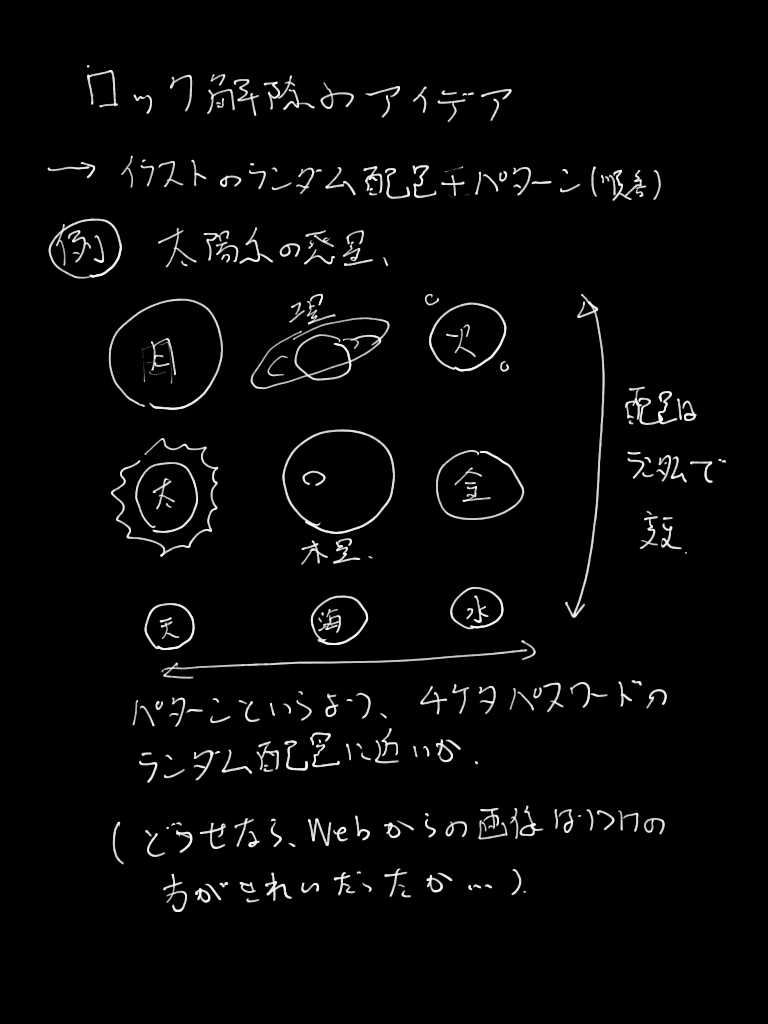 ロック解除のアイデア
→ イラストのランダム配置+パターン(順番)
例 太陽系の惑星、
月 環 火
太 金
木星、
天 海 水
配置は
ランダムで
変更.
パターンというよう、4ケタパスワードの
ランダム配置に近いか.
(どうせなら、Webからの画像はりつけの
方がきれいだったか…).